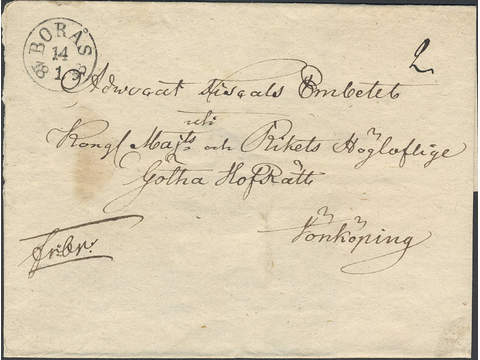 BORÅS
14
1
2
Advocat Fiscals Embetet
uti
Kongl Majts och Rikets Högloflige
Götha HofRätt
Jönköping
fribr: